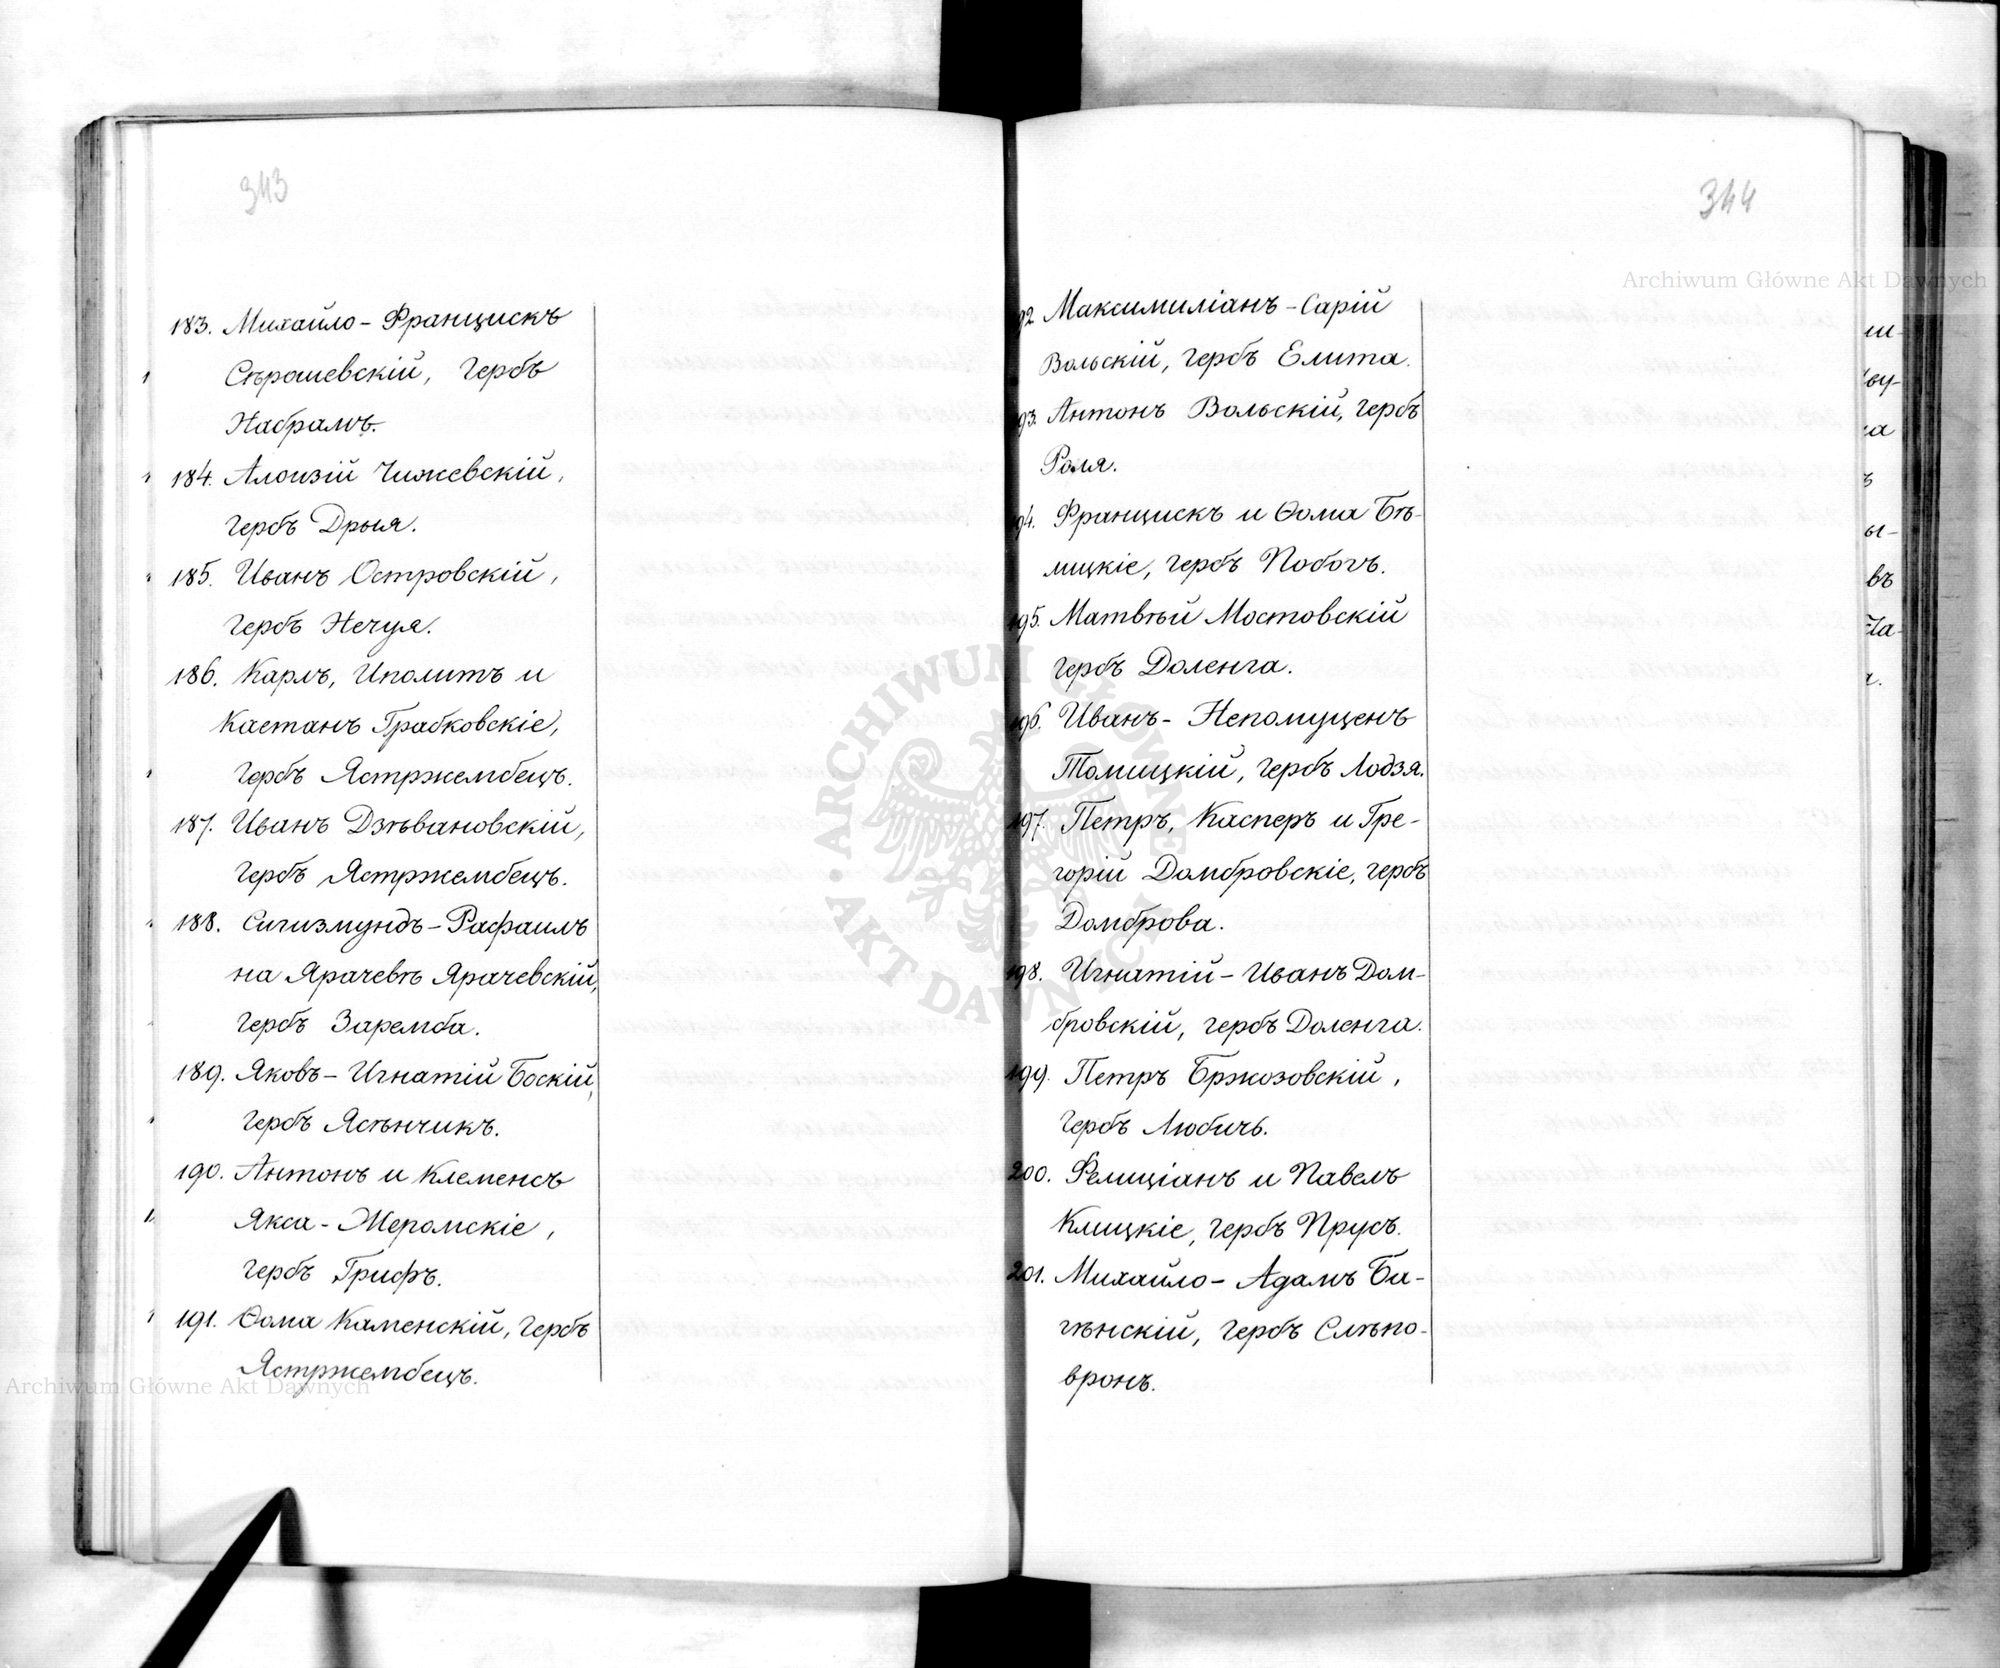 343
183. Михайло-Францискъ
Сѣрошевскій, гербъ
Набрамъ.
184. Алоизій Чижевскій,
гербъ Дрыя.
185. Иванъ Островскій,
гербъ Нечуя.
186. Карлъ, Иполитъ и
Каетанъ Грабковскіе,
гербъ Ястржембецъ.
187. Иванъ Дзѣвановскій,
гербъ Ястржембецъ.
188. Сигизмундъ-Рафаилъ
на Ярачевѣ Ярачевскій,
гербъ Заремба.
189. Яковъ-Игнатій Боскій,
гербъ Ясѣнчикъ.
190. Антонъ и Клеменсъ
Якса-Жеромскіе,
гербъ Грифъ.
191. Ѳома Каменскій, гербъ
Ястржембецъ.
Archiwum Główne Akt Dawnych
344
Archiwum Główne Akt Dawnych
92 Максимиліанъ-Сарій
Вольскій, гербъ Елита.
93. Антонъ Вольскій, гербъ
Роля.
94. Францискъ и Ѳома Бѣ-
лицкіе, гербъ Побогъ.
195. Матвѣй Мостовскій
гербъ Доленга.
196. Иванъ-Непомуценъ
Томицкій, гербъ Лодзя.
197. Петръ, Касперъ и Гре-
горій Домбровскіе, гербъ
Домброва.
198. Игнатій-Иванъ Дом-
бровскій, гербъ Доленга.
199. Петръ Бржозовскій,
гербъ Любичъ.
200. Фелиціанъ и Павелъ
Клицкіе, гербъ Прусъ.
201. Михайло-Адамъ Ба-
гѣнскій, гербъ Слѣпо-
вронъ.
ARCHIWUM GŁÓWNE
AKT DAWNYCH